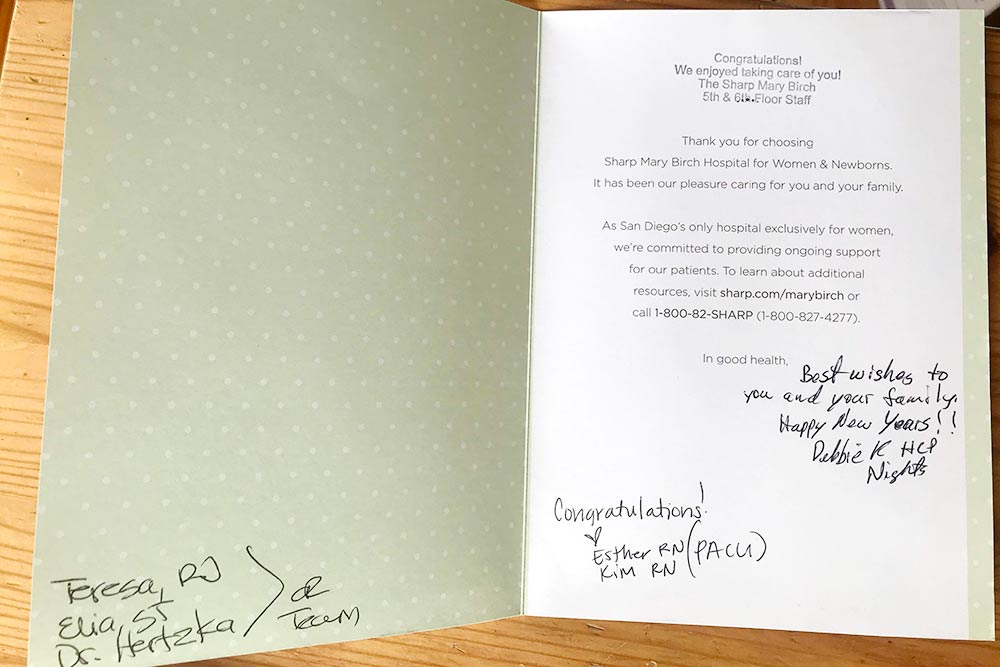 Teresa, RN
Elia, ST
Dr. Hertzka
OR
Team
Congratulations!
We enjoyed taking care of you!
The Sharp Mary Birch
5th & 6th Floor Staff
Thank you for choosing
Sharp Mary Birch Hospital for Women & Newborns.
It has been our pleasure caring for you and your family.
As San Diego's only hospital exclusively for women,
we're committed to providing ongoing support
for our patients. To learn about additional
resources, visit sharp.com/marybirch or
call 1-800-82-SHARP (1-800-827-4277).
In good health,
Best wishes to
you and your family.
Happy New Years!!
Debbie K HCP
Nights
Congratulations!
Esther RN (PACU)
Kim RN